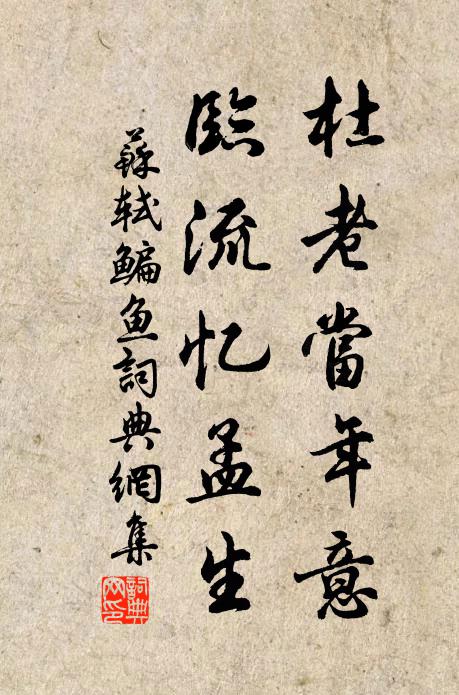 杜老當年意
臨流忆孟生
蘇軾鳊鱼詞典網集